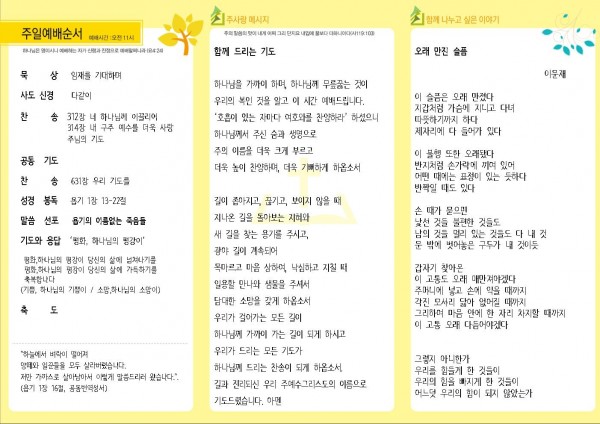 주일예배순서 예배시간 : 오전 11시
하나님은 영이시니 예배하는 자가 신령과 진정으로 예배할찌니라 (요4:24)
묵 상 임재를 기대하며
사도 신경 다같이
찬 송 312장 네 하나님께 이끌리어
314장 내 구주 예수를 더욱 사랑
주님의 기도
공동 기도
찬 송 631장 우리 기도를
성경 봉독 욥기 1장 13-22절
말씀 선포 욥기의 이름없는 죽음들
기도와 응답 '평화, 하나님의 평강이'
평화,하나님의 평강이 당신의 삶에 넘쳐나기를
평화,하나님의 평강이 당신의 삶에 가득하기를
축복합니다
(기쁨, 하나님의 기쁨이 / 소망,하나님의 소망이)
축 도
"하늘에서 벼락이 떨어져
양떼와 일꾼들을 모두 살라버렸습니다.
저만 가까스로 살아남아서 이렇게 말씀드리러 왔습니다.".
(욥기 1장 16절, 공동번역성서)
주사랑 메시지
주의 말씀의 맛이 내게 어찌 그리 단지요 내입에 꿀보다 더하니이다(시119:103)
함께 드리는 기도
하나님을 가까이 하며, 하나님께 무릎꿇는 것이
우리의 복인 것을 알고 이 시간 예배드립니다.
'호흡이 있는 자마다 여호와를 찬양하라' 하셨으니
하나님께서 주신 숨과 생명으로
주의 이름을 더욱 크게 부르고
더욱 높이 찬양하며, 더욱 기뻐하게 하옵소서
길이 좁아지고, 끊기고, 보이지 않을 때
지나온 길을 돌아보는 지혜와
새 길을 찾는 용기를 주시고,
광야 길이 계속되어
목마르고 마음 상하여, 낙심하고 지칠 때
일용할 만나와 샘물을 주셔서
담대한 소망을 갖게 하옵소서
우리가 걸어가는 모든 길이
하나님께 가까이 가는 길이 되게 하시고
우리가 드리는 모든 기도가
하나님께 드리는 찬송이 되게 하옵소서.
길과 진리되신 우리 주예수그리스도의 이름으로
기도드렸습니다. 아멘
함께 나누고 싶은 이야기
오래 만진 슬픔
이문재
이 슬픔은 오래 만졌다
지갑처럼 가슴에 지니고 다녀
따뜻하기까지 하다
제자리에 다 들어가 있다
이 불행 또한 오래됐다
반지처럼 손가락에 끼여 있어
어떤 때에는 표정이 있는 듯하다
반짝일 때도 있다
손 때가 묻으면
낯선 것들 불편한 것들도
남의 것들 멀리 있는 것들도 다 내 것
문 밖에 벗어놓은 구두가 내 것이듯
갑자기 찾아온
이 고통도 오래 매만져야겠다
주머니에 넣고 손에 익을 때까지
각진 모서리 닳아 없어질 때까지
그리하여 마음 안에 한 자리 차지할 때까지
이 고통 오래 다듬어야겠다
그렇지 아니한가
우리를 힘들게 한 것들이
우리의 힘을 빠지게 한 것들이
어느덧 우리의 힘이 되지 않았는가